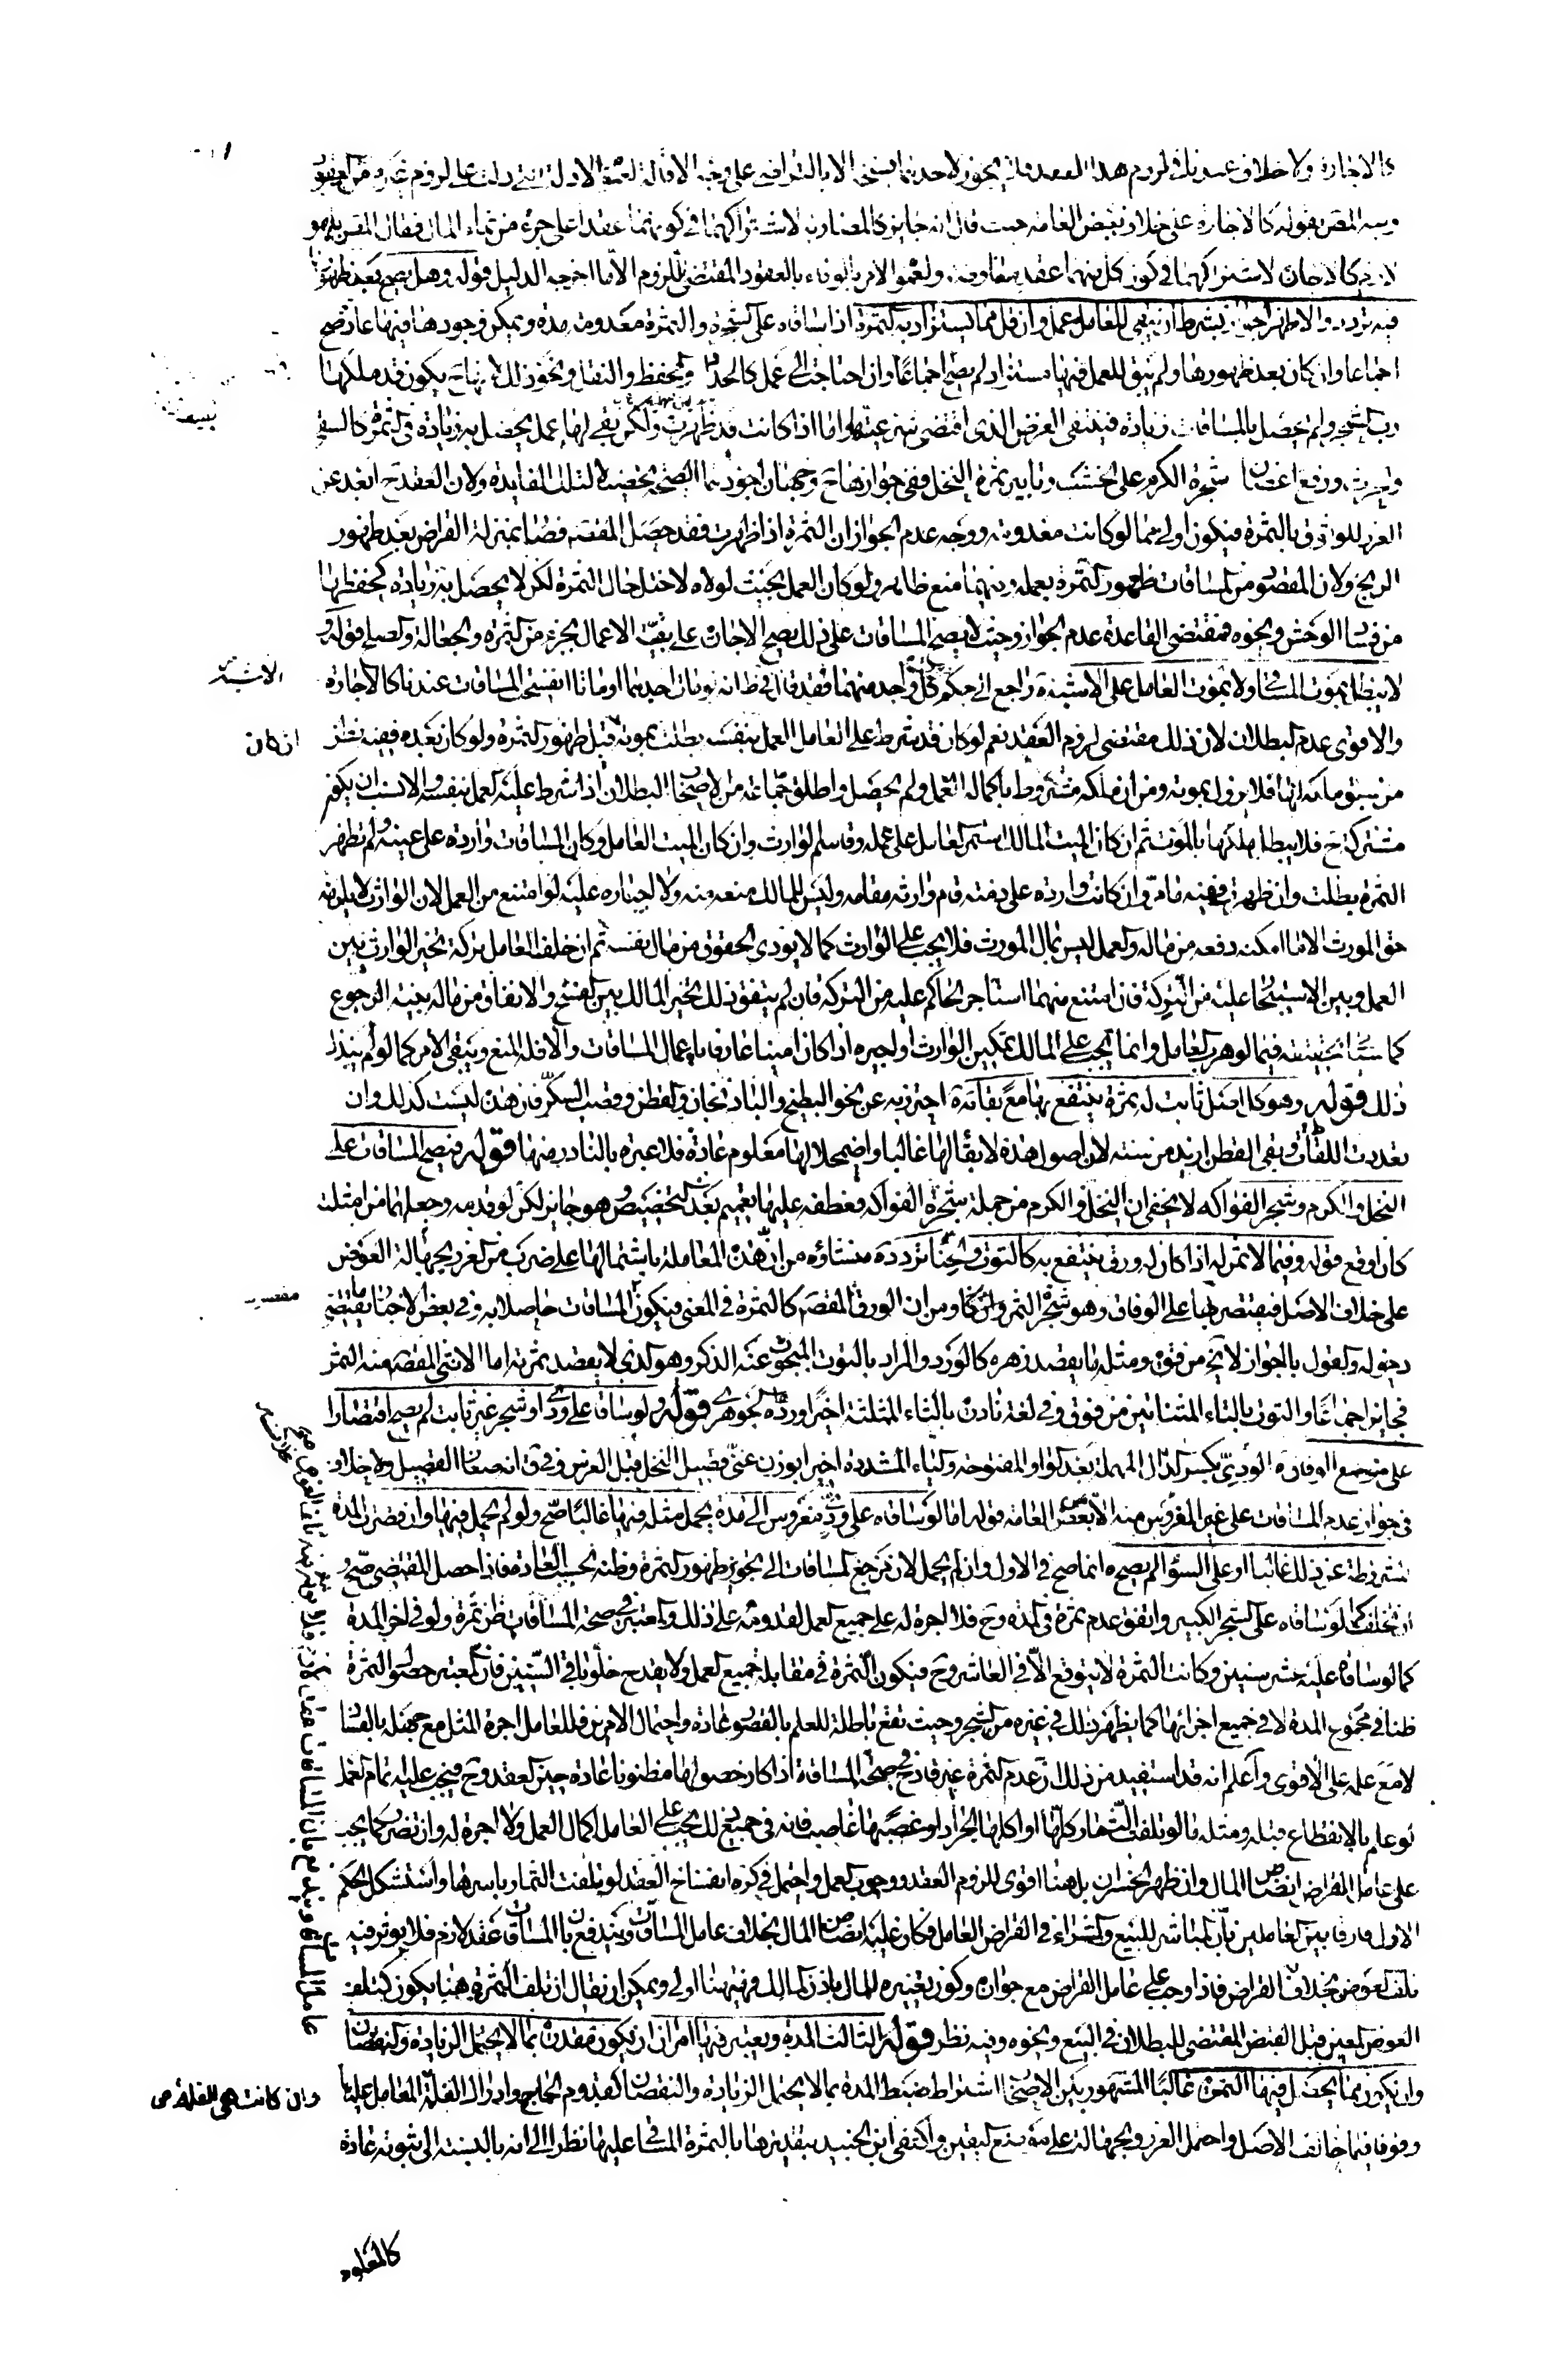 كالاجارة ولا خلاف عندنا في لزوم هذا العقد فلا يجوز لاحدهما فسخه الا بالتراضي على وجه الاقالة لعموم الادلة التي دلت على لزوم غيره من العقود
ونبه المصنف بقوله كالاجارة على خلاف بعض العامة حيث قال انه جايز كالمضاربة لاشتراكهما في كونهما عقدا على جزء من نماء المال فقال المصنف بل هو
لازم كالاجارة لاشتراكهما في كون كل منهما عقد معاوضة ولعموم الامر بالوفاء بالعقود المقتضي للزوم الا ما اخرجه الدليل قوله وهل يصح بعد ظهورها
فيه تردد والاظهر الجواز بشرط ان يبقى للعامل عمل وان قل مما يستزاد به الثمرة اذا ساقاه على الشجرة والثمرة معدومة مدة يمكن وجودها فيها عادة صح
اجماعا وان كان بعد ظهورها ولم يبق للعمل فيها مستزاد لم يصح اجماعا وان احتاجت الى عمل كالجداد والحفظ والنقل ونحو ذلك لانها ح يكون قد ملكها
رب الشجر ولم يحصل بالمساقات زيادة فينتفي الغرض الذي اقتضى شرعيتها واما اذا كانت قد ظهرت ولكن بقي لها عمل يحصل به زيادة في الثمرة كالسقي
والحرث ورفع اغصان شجرة الكرم على الخشب وتابير ثمرة النخل ففي جوازها ح وجهان اجودهما الصحة تحصيلا لتلك الفايدة ولان العقد ح ابعد عن
الغرر للوثوق بالثمرة فيكون اولى مما لو كانت معدومة ووجه عدم الجواز ان الثمرة اذا ظهرت فقد حصل المقصود فصار بمنزلة القراض بعد ظهور
الربح ولان المقصود من المساقات ظهور الثمرة بعمله وفيهما منع ظاهر ولو كان العمل بحيث لولاه لاختل حال الثمرة لكن لا يحصل به زيادة كحفظها
من فساد الوحش ونحوه فمقتضى القاعدة عدم الجواز وحيث لا يصح المساقات على ذلك يصح الاجارة على بقية الاعمال بجزء من الثمرة والجعالة والصلح قوله و
لا يبطل بموت المساقي ولا بموت العامل على الاشبه راجع الى حكم كل واحد منهما فقد قال في ط انه لو مات احدهما او ماتا انفسخ المساقات عندنا كالاجارة
والاقوى عدم البطلان لان ذلك مقتضى لزوم العقد نعم لو كان قد شرط على العامل العمل بنفسه بطلت بموته قبل ظهور الثمرة ولو كان بعده ففيه نظر
من سبق ملكه لها فلا يزول بموته ومن ان ملكه مشروط باكماله العمل ولم يحصل واطلق جماعة من الاصحاب البطلان اذا شرط عليه العمل بنفسه والانسب ان يكون
مشتركة ح فلا يبطل ملكها بالموت ثم ان كان الميت المالك استمر العامل على عمله وقاسم الوارث وان كان الميت العامل وكان المساقات واردة على عينه ولم تظهر
الثمرة بطلت وان ظهرت ففيه ما مر وان كانت واردة على ذمته قام وارثه مقامه وليس للمالك منعه منه ولا اجباره عليه لو امتنع من العمل لان الوارث لا يلزمه
حق المورث الا ما امكنه دفعه من ماله والعمل ليس بمال المورث فلا يجب على الوارث كما لا يؤدى الحقوق من مال نفسه ثم ان خلف العامل تركة تخير الوارث بين
العمل وبين الاستيجار عليه من التركة فان امتنع منهما استاجر الحاكم عليه من التركة فان لم يتفق ذلك تخير المالك بين الفسخ والانفاق من ماله بنية الرجوع
كما سياتي تحقيقه فيما لو هرب العامل وانما يجب على المالك تمكين الوارث او اجيره اذا كان امينا عارفا باعمال المساقات والا فله المنع ويبقى الامر كما لو لم يبذل
ذلك قوله وهو كل اصل ثابت له ثمرة ينتفع بها مع بقائه احترز به عن نحو البطيخ والباذنجان والقطن وقصب السكر فان هذه ليست كذلك وان
تعددت اللقطات وبقي القطن ازيد من سنة لان اصول هذه لا بقاء لها غالبا واضمحلالها معلوم عادة فلا عبرة بالنادر منها قوله فتصح المساقات على
النخل والكرم وشجر الفواكه لا يخفى ان النخل والكرم من جملة شجرة الفواكه فعطفه عليها تعميم بعد التخصيص وهو جايز لكن لو قدمه وجعلهما من امثلته
كان اوقع قوله وفيما لا ثمر له اذا كان له ورق ينتفع به كالتوت والحنا تردد منشاؤه من ان هذه المعاملة باشتمالها على ضرب من الغرر بجهالة العوض
على خلاف الاصل فيقتصر بها على الوفاق وهو شجر الثمر ومن ان الورق المقصود كالثمرة في المعنى فيكون المساقات حاصلا به وفي بعض الاخبار ما يقتضي
دخوله والقول بالجواز لا يخ من قوة ومثله ما يقصد زهره كالورد والمراد بالتوت المبحوث عنه الذكر وهو الذي لا يقصد ثمرته اما الانثى المقصود منه الثمر
فجايز اجماعا والتوت بالتاء المثناتين من فوق وفي لغة نادرة بالثاء المثلثة اخيرا ورده الجوهري قوله ولو ساقى على ودي او شجر غير ثابت لم يصح اقتصارا
على موضع الوفاق الودي بكسر الدال المهملة بعد الواو المفتوحة والياء المشددة اخيرا بوزن غني فسيل النخل قبل الغرس وفي ق انه صغار الفسيل ولا خلاف
في جواز عدم المساقات على غير المغروس منه الا بعض العامة قوله اما لو ساقاه على ودي مغروس الى مدة يحمل مثله فيها غالبا صح ولو لم يحمل فيها وان قصرت المدة
المشترطة عن ذلك غالبا او على السواء لم يصح انما صح في الاول وان لم يحمل لان مرجع المساقات الى تجويز ظهور الثمرة وظنه بحسب العادة فاذا حصل المقتضى صح و
ان تخلف كما لو ساقاه على الشجر الكبير واتفق عدم ثمرة في المدة وح فلا اجرة له على جميع العمل لقدومه على ذلك والمعتبر في صحة المساقات ظن ثمرة ولو في اخر المدة
كما لو ساقاه عليه عشر سنين وكانت الثمرة لا يتوقع الا في العاشر وح فيكون الثمرة في مقابلة جميع العمل ولا يقدح خلو باقي السنين فان المعتبر حصول الثمرة
ظنا في مجموع المدة لا في جميع اجزائها كما يظهر ذلك في غيره من الشجر وحيث تقع باطلة للعلم بالقصور عادة واحتمال الامرين فللعامل اجرة المثل مع جهله بالفساد
لا مع علمه على الاقوى واعلم انه قد استفيد من ذلك ان عدم الثمرة غير قادح في صحة المساقاة اذا كان حصولها مظنونا عادة حين العقد وح فيجب عليه تمام العمل
لو علم بالانقطاع قبله ومثله ما لو تلفت الثمار كلها او اكلها الجراد او غصبها غاصب فانه في جميع ذلك يجب على العامل اكمال العمل ولا اجرة له وان تضرر كما يجب
على عامل القراض انضاض المال وان ظهر الخسران بل هنا اقوى للزوم العقد ووجوب العمل واحتمل في كره انفساخ العقد لو تلفت الثمار باسرها واستشكل الحكم
الاول فارقا بين العاملين بان المباشر للبيع والشراء في القراض العامل فكان عليه انضاض المال بخلاف عامل المساقات ويندفع بان المساقات عقد لازم فلا يوثر فيه
تلف العوض بخلاف القراض فاذا وجب على عامل القراض مع جوازه وكون تغييره للمال باذن المالك فهنا اولى ويمكن ان يقال ان تلف الثمرة هنا يكون كتلف
العوض المعين قبل القبض المقتضي للبطلان في البيع ونحوه وفيه نظر قوله الثالث المدة ويعتبر فيها امران ان يكون مقدرة بما لا يحتمل الزيادة والنقصان
وان يكون مما يحصل فيها الثمرة غالبا المشهور بين الاصحاب اشتراط ضبط المدة بما لا يحتمل الزيادة والنقصان كقدوم الحاج وادراك الغلة المعامل عليها
وقوفا فيما خالف الاصل واحتمل الغرر والجهالة على موضع اليقين واكتفى ابن الجنيد بتقديرها بالثمرة المساقي عليها نظرا الى انه بالنسبة الى ثبوته عادة
كالمعلوم
الاشبه
ان كان
وان كانت هي الغلة ص